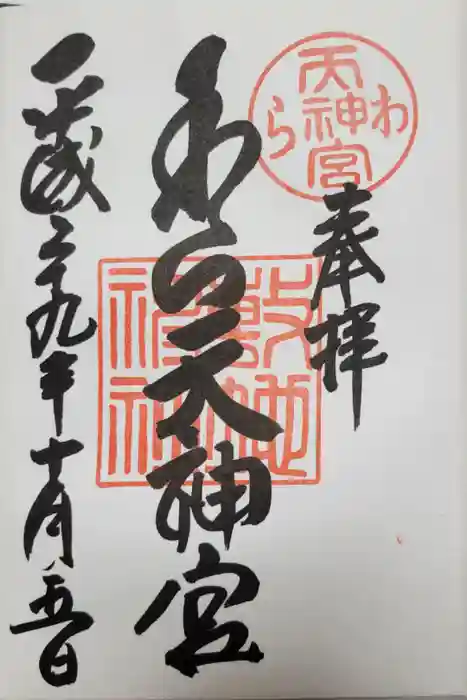 天神宮
わら
奉拝
わら天神宮
敷地神社
平成二十九年十月五日